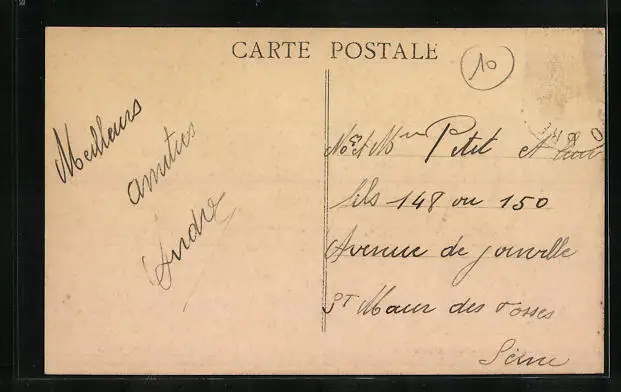 CARTE POSTALE
10
Meilleurs
amitiés
André
Petit et leur
fils 148 ou 150
Avenue de Joinville
St Maur des Fosses
Seine